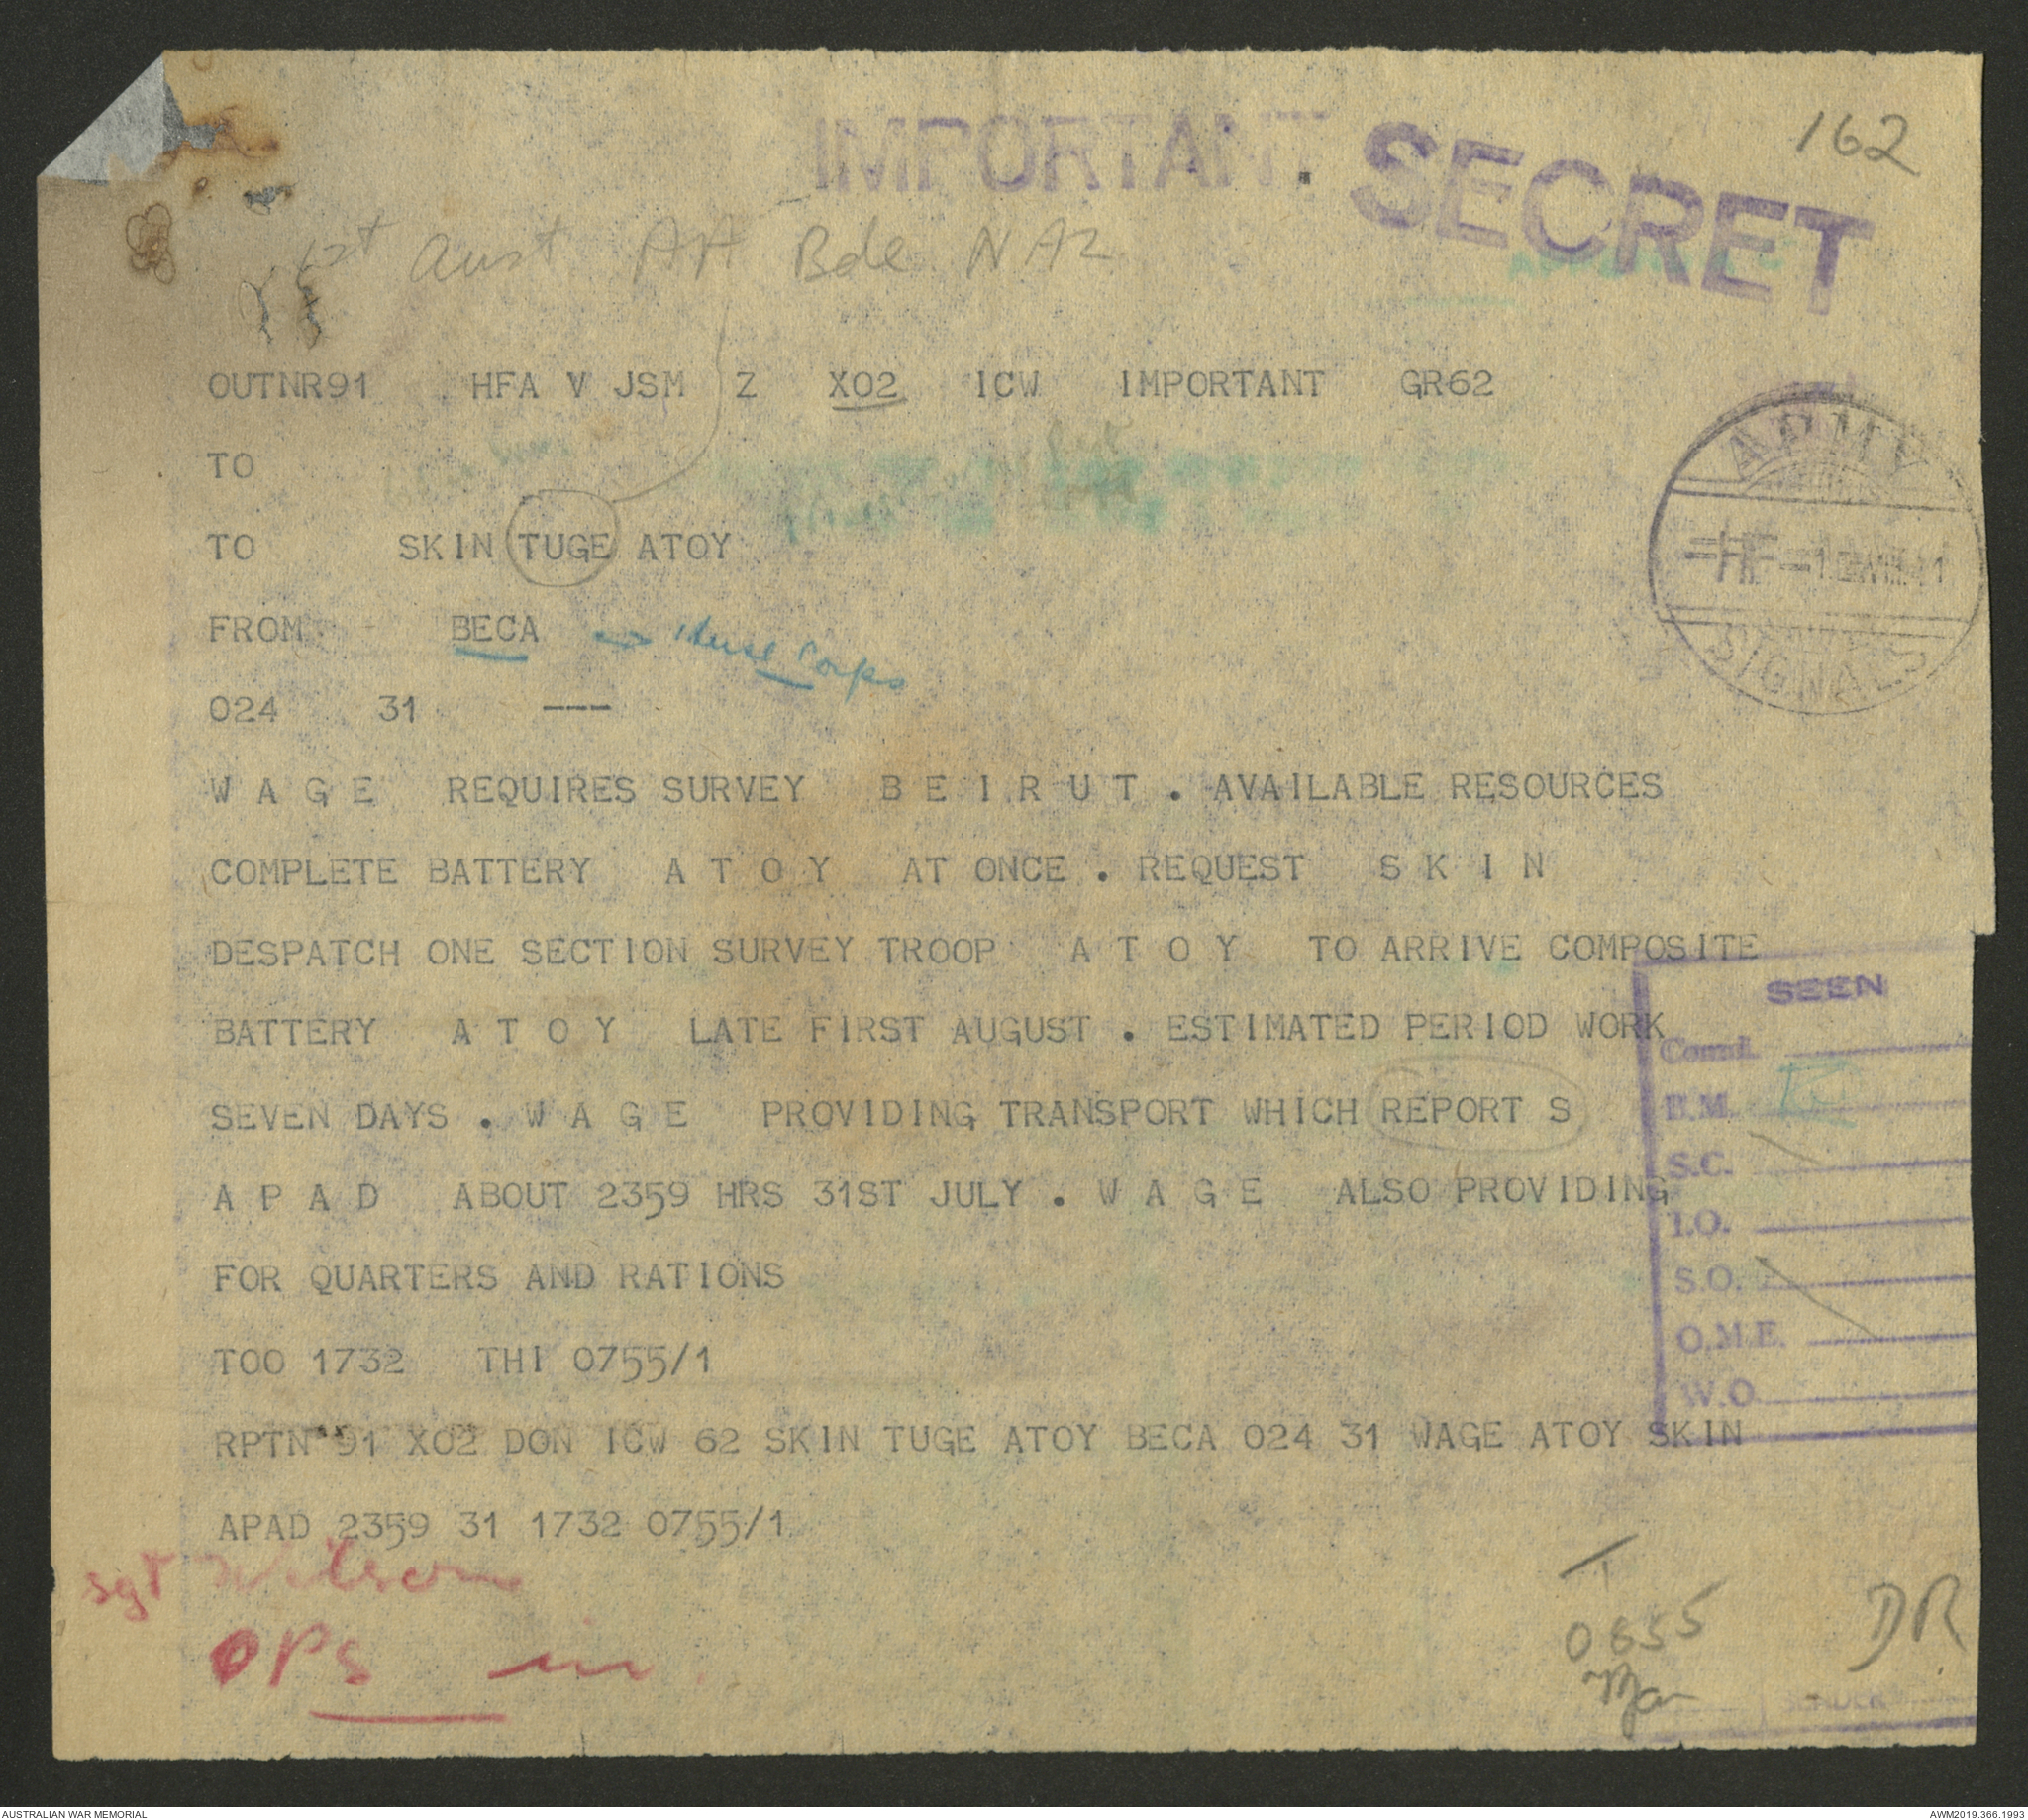 162
IMPORTANT SECRET
1st Aust AA Bde
OUTNR91 HFA V JSM Z XO2 ICW IMPORTANT GR62
TO
TO SKIN TUGE ATOY
FROM BECA Corps
ARMY
SIGNALS
024 31 ---
W A G E REQUIRES SURVEY B E I R U T . AVAILABLE RESOURCES
COMPLETE BATTERY A T O Y AT ONCE . REQUEST S K I N
DESPATCH ONE SECTION SURVEY TROOP A T O Y TO ARRIVE COMPOSITE
BATTERY A T O Y LATE FIRST AUGUST . ESTIMATED PERIOD WORK
SEVEN DAYS . W A G E PROVIDING TRANSPORT WHICH REPORT S
A P A D ABOUT 2359 HRS 31ST JULY . W A G E ALSO PROVIDING
FOR QUARTERS AND RATIONS
TOO 1732 THI 0755/1
RPTN 91 XO2 DON ICW 62 SKIN TUGE ATOY BECA 024 31 WAGE ATOY SKIN
APAD 2359 31 1732 0755/1
SEEN
Comd.
B.M.
S.C.
I.O.
S.O.
O.M.E.
W.O.
Sgt Wilson
OPS in
0655
DR
AUSTRALIAN WAR MEMORIAL AWM2019.366.1993